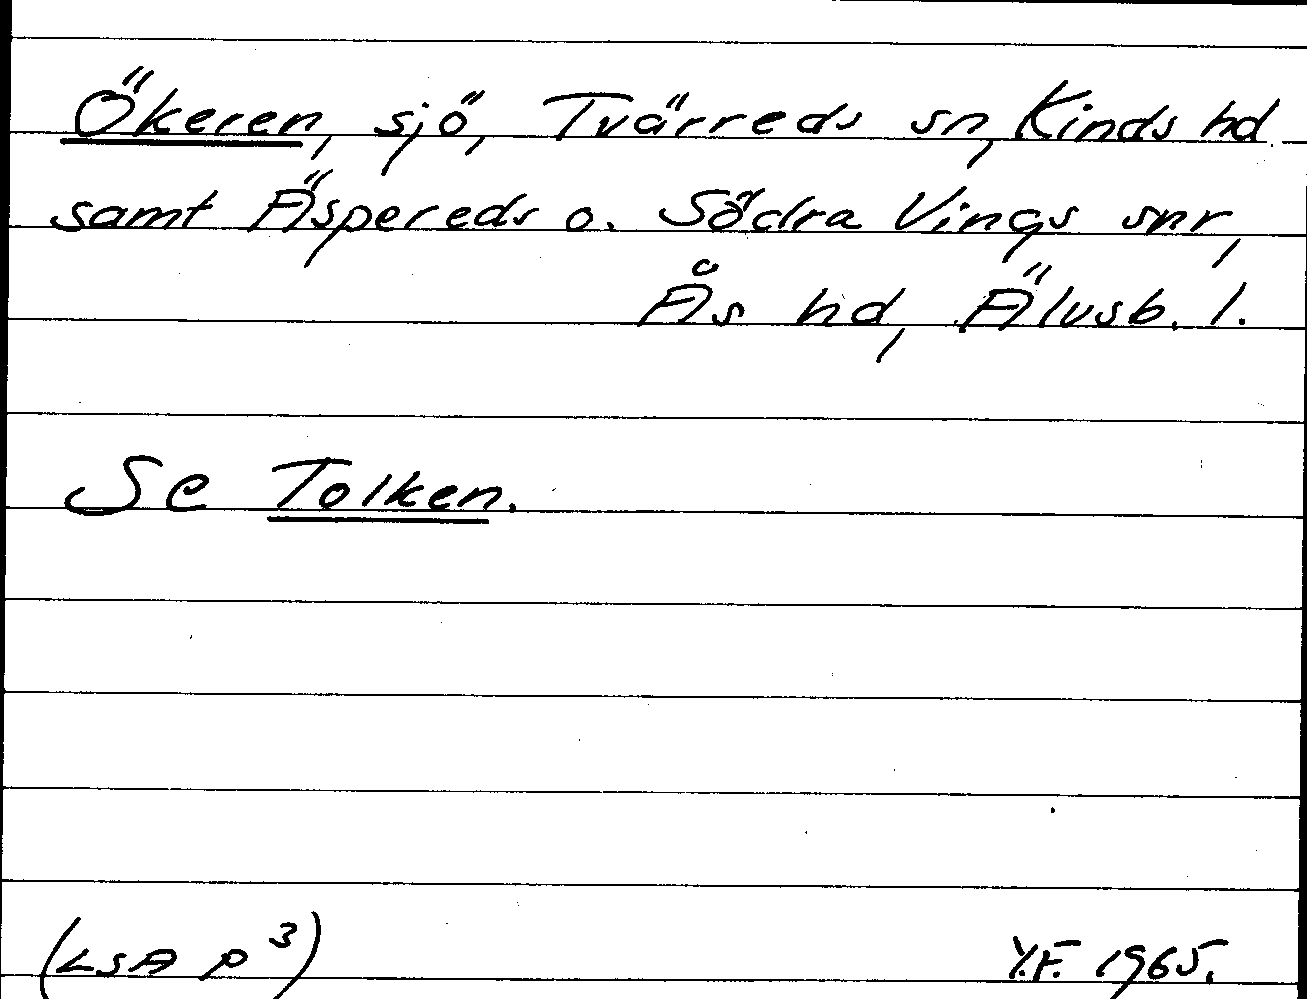 Ökeren, sjö, Tvärreds sn, Kinds hd
samt Äspereds o. Södra Vings snr,
Ås hd, Älvsb. l.
Se Tolken.
(LSA P³)
Y.F. 1965.